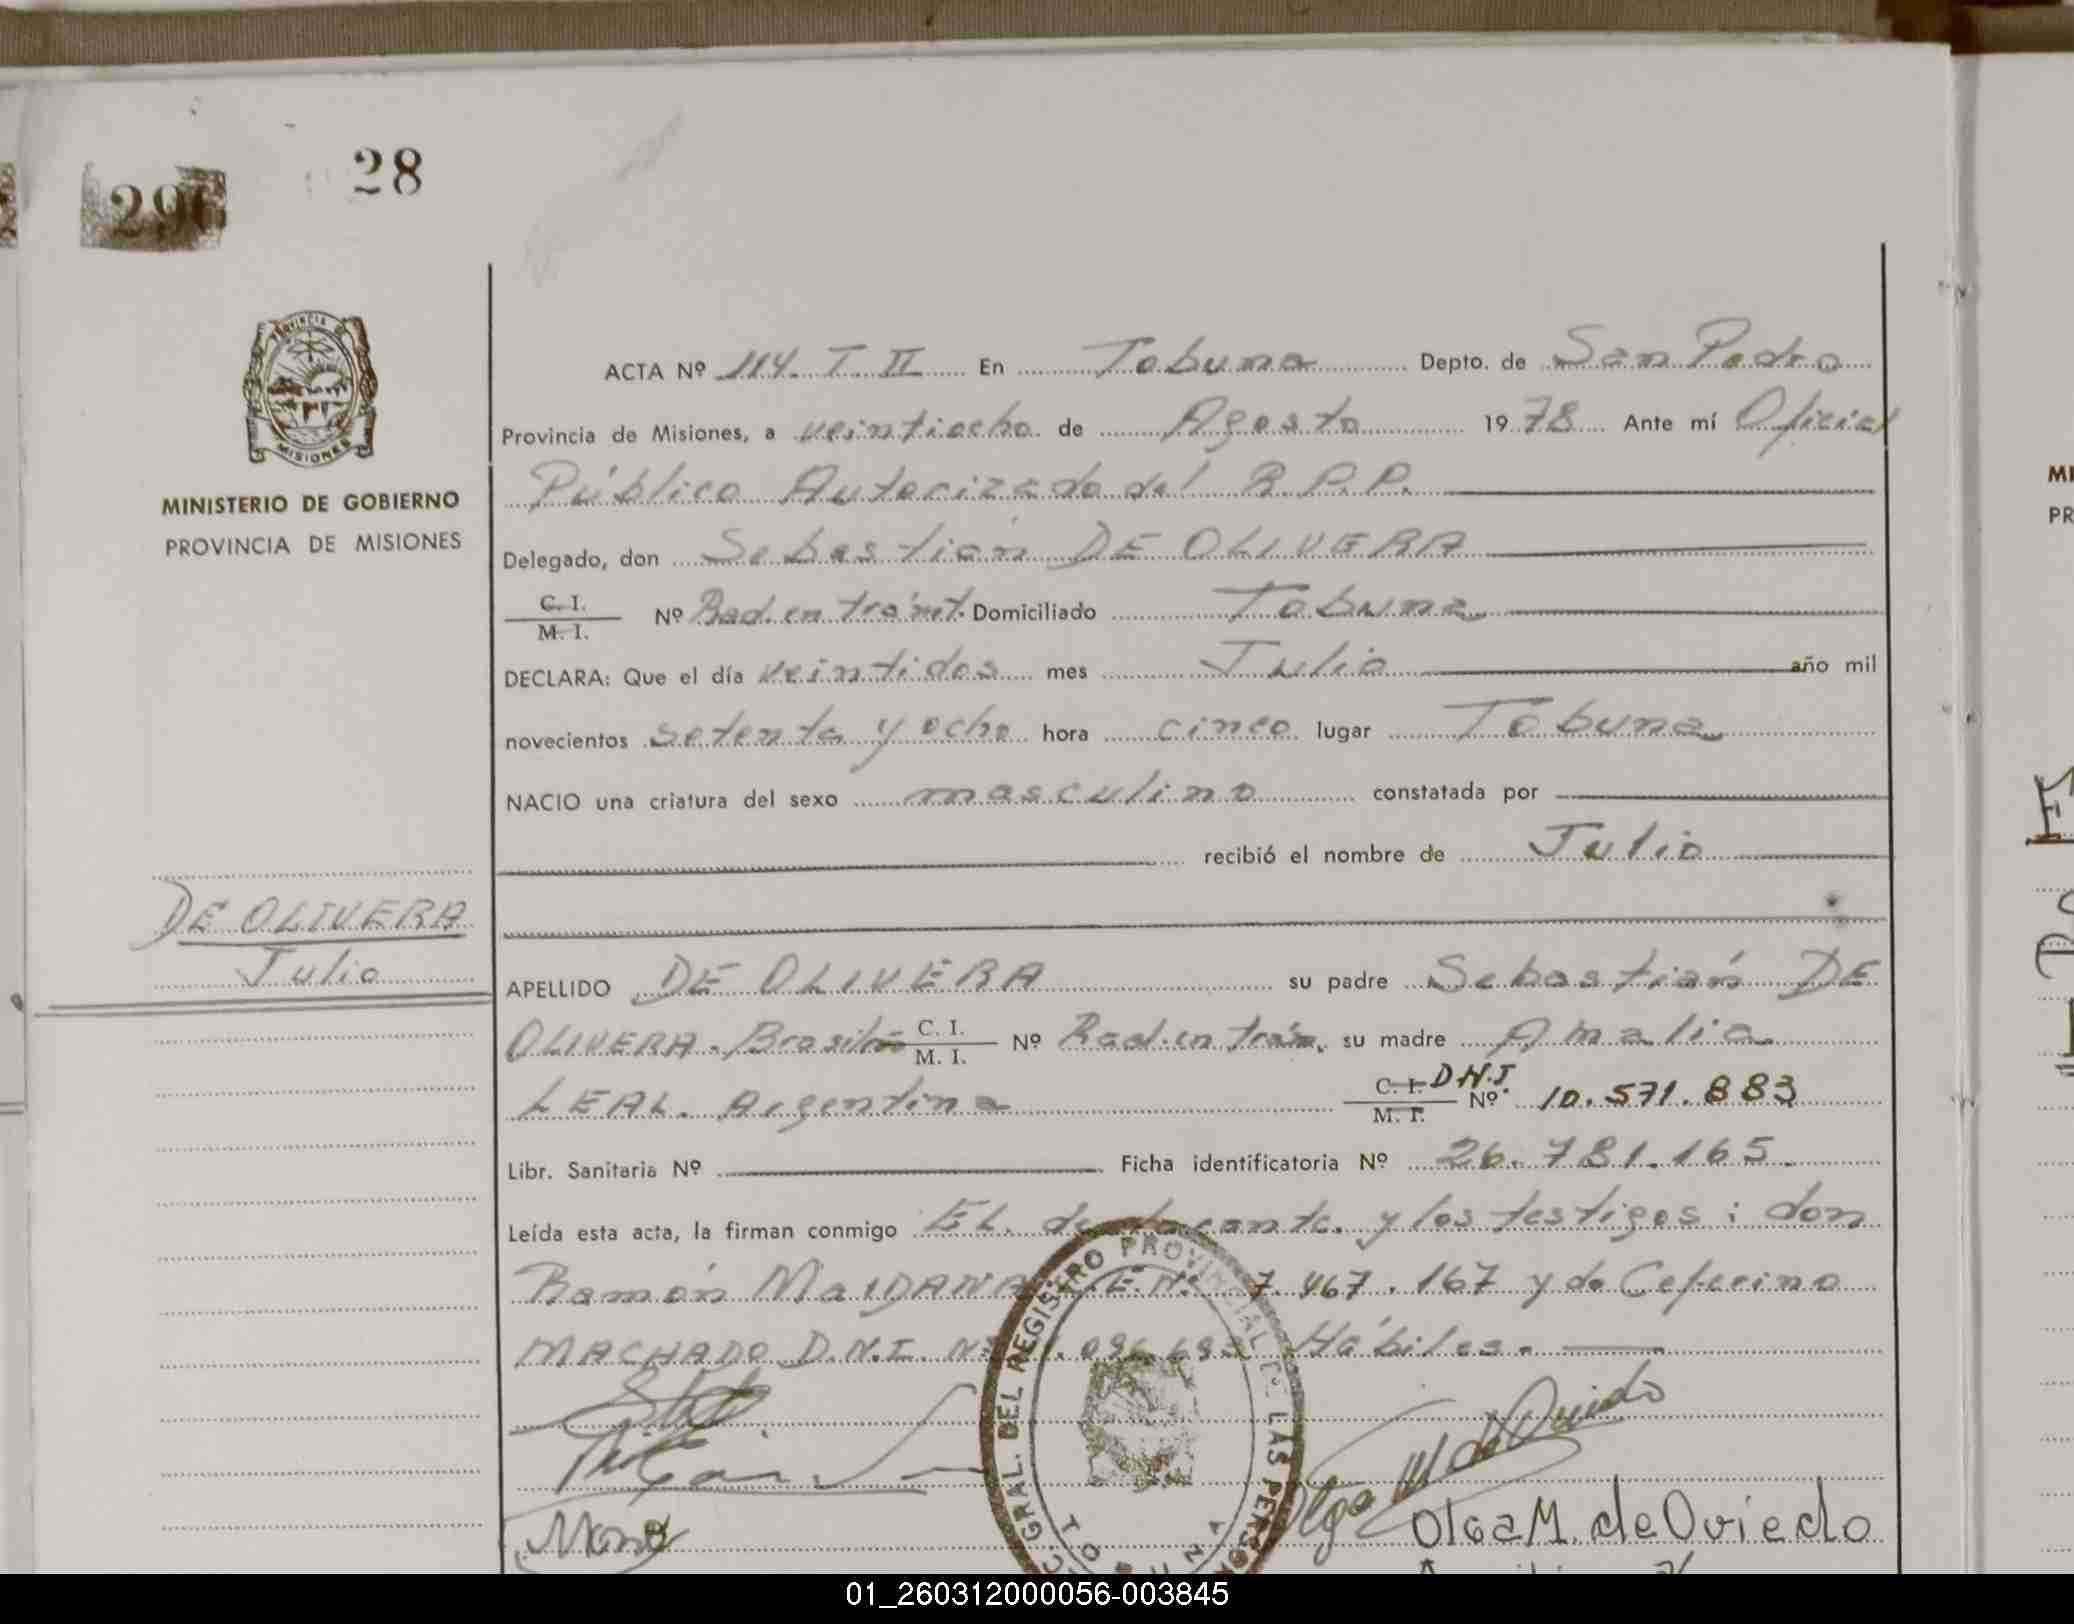 28
296
PROVINCIA DE
MISIONES
MINISTERIO DE GOBIERNO
PROVINCIA DE MISIONES
DE OLIVERA
Julio
ACTA Nº 114. T II En Tobuna Depto. de San Pedro
Provincia de Misiones, a veintiocho de Agosto 1978 Ante mí Oficial
Público Autorizado del R.P.P.
Delegado, don Sebastián DE OLIVERA
C. I.
M. I. Nº Rad. en trámt. Domiciliado Tobuna
DECLARA: Que el día veintidos mes Julio año mil
novecientos setenta y ocho hora cinco lugar Tobuna
NACIO una criatura del sexo masculino constatada por
recibió el nombre de Julio
APELLIDO DE OLIVERA su padre Sebastián DE
OLIVERA. C. I. M. I. Nº Rad. en trám. su madre Amalia
LEAL. Argentina C. I. M. I. D.N.I. Nº 10.571.883
Libr. Sanitaria Nº Ficha identificatoria Nº 26.781.165.
Leída esta acta, la firman conmigo EL. declarante. y los testigos: don
Ramón MaIDANA 7.467.167 y do Ceferino
MACHADO D.N.I. Nº Hábiles.
GRAL. DEL REGISTRO PROVINCIAL DE LAS PERSON
Olga M. de Oviedo
Olga M. de Oviedo
MI
PR
01_260312000056-003845